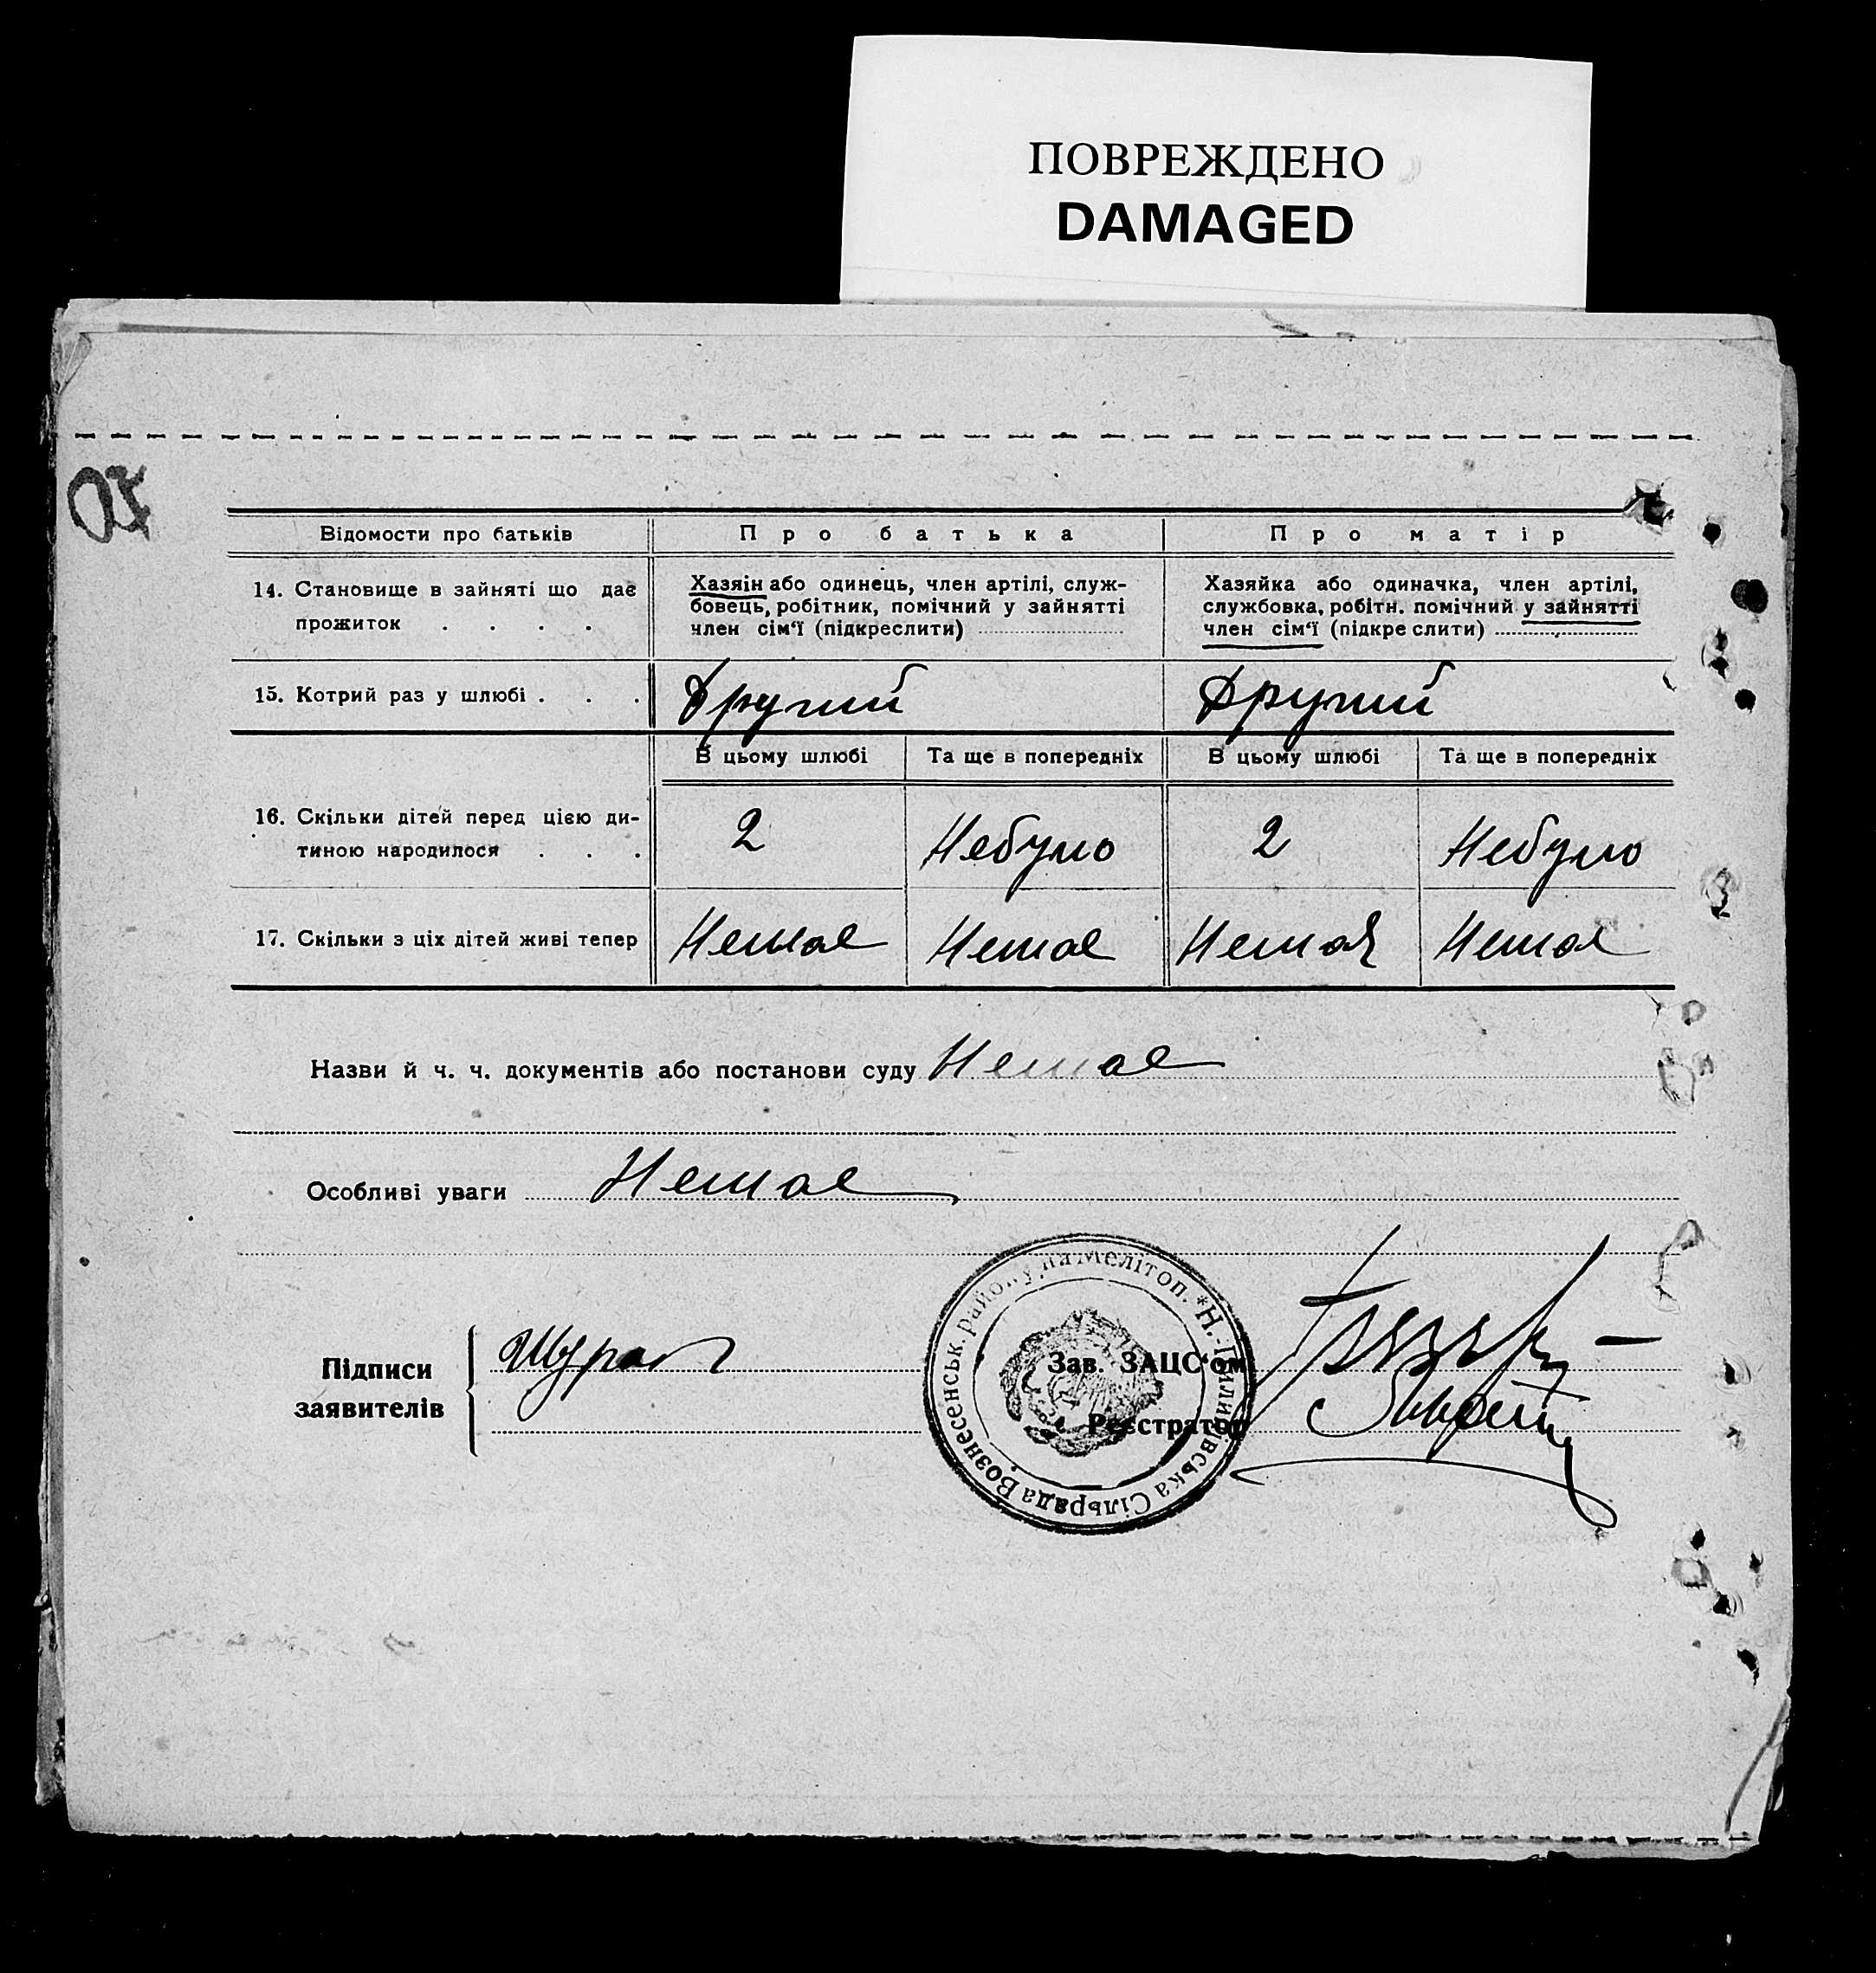 ПОВРЕЖДЕНО
DAMAGED
Відомости про батьків
Про батька
Про матір
14. Становище в зайняті що дає
прожиток . . . .
Хазяїн або одинець, член артілі, служ-
бовець, робітник, помічний у зайнятті
член сім‘ї (підкреслити)
Хазяйка або одиначка, член артілі,
службовка, робітн. помічний у зайнятті
член сім‘ї (підкреслити)
15. Котрий раз у шлюбі . . .
Другий
Другий
В цьому шлюбі
Та ще в попередніх
В цьому шлюбі
Та ще в попередніх
16. Скільки дітей перед цією ди-
тиною народилося . . .
2
Небуло
2
Небуло
17. Скільки з ціх дітей живі тепер
Немає
Немає
Немає
Немає
Назви й ч. ч. документів або постанови суду Немає
Особливі уваги Немає
Підписи
заявителів
Зав. ЗАЦС‘ом
Реєстратор
Сільрада Вознесенськ. району на Мелітоп. * Н.-